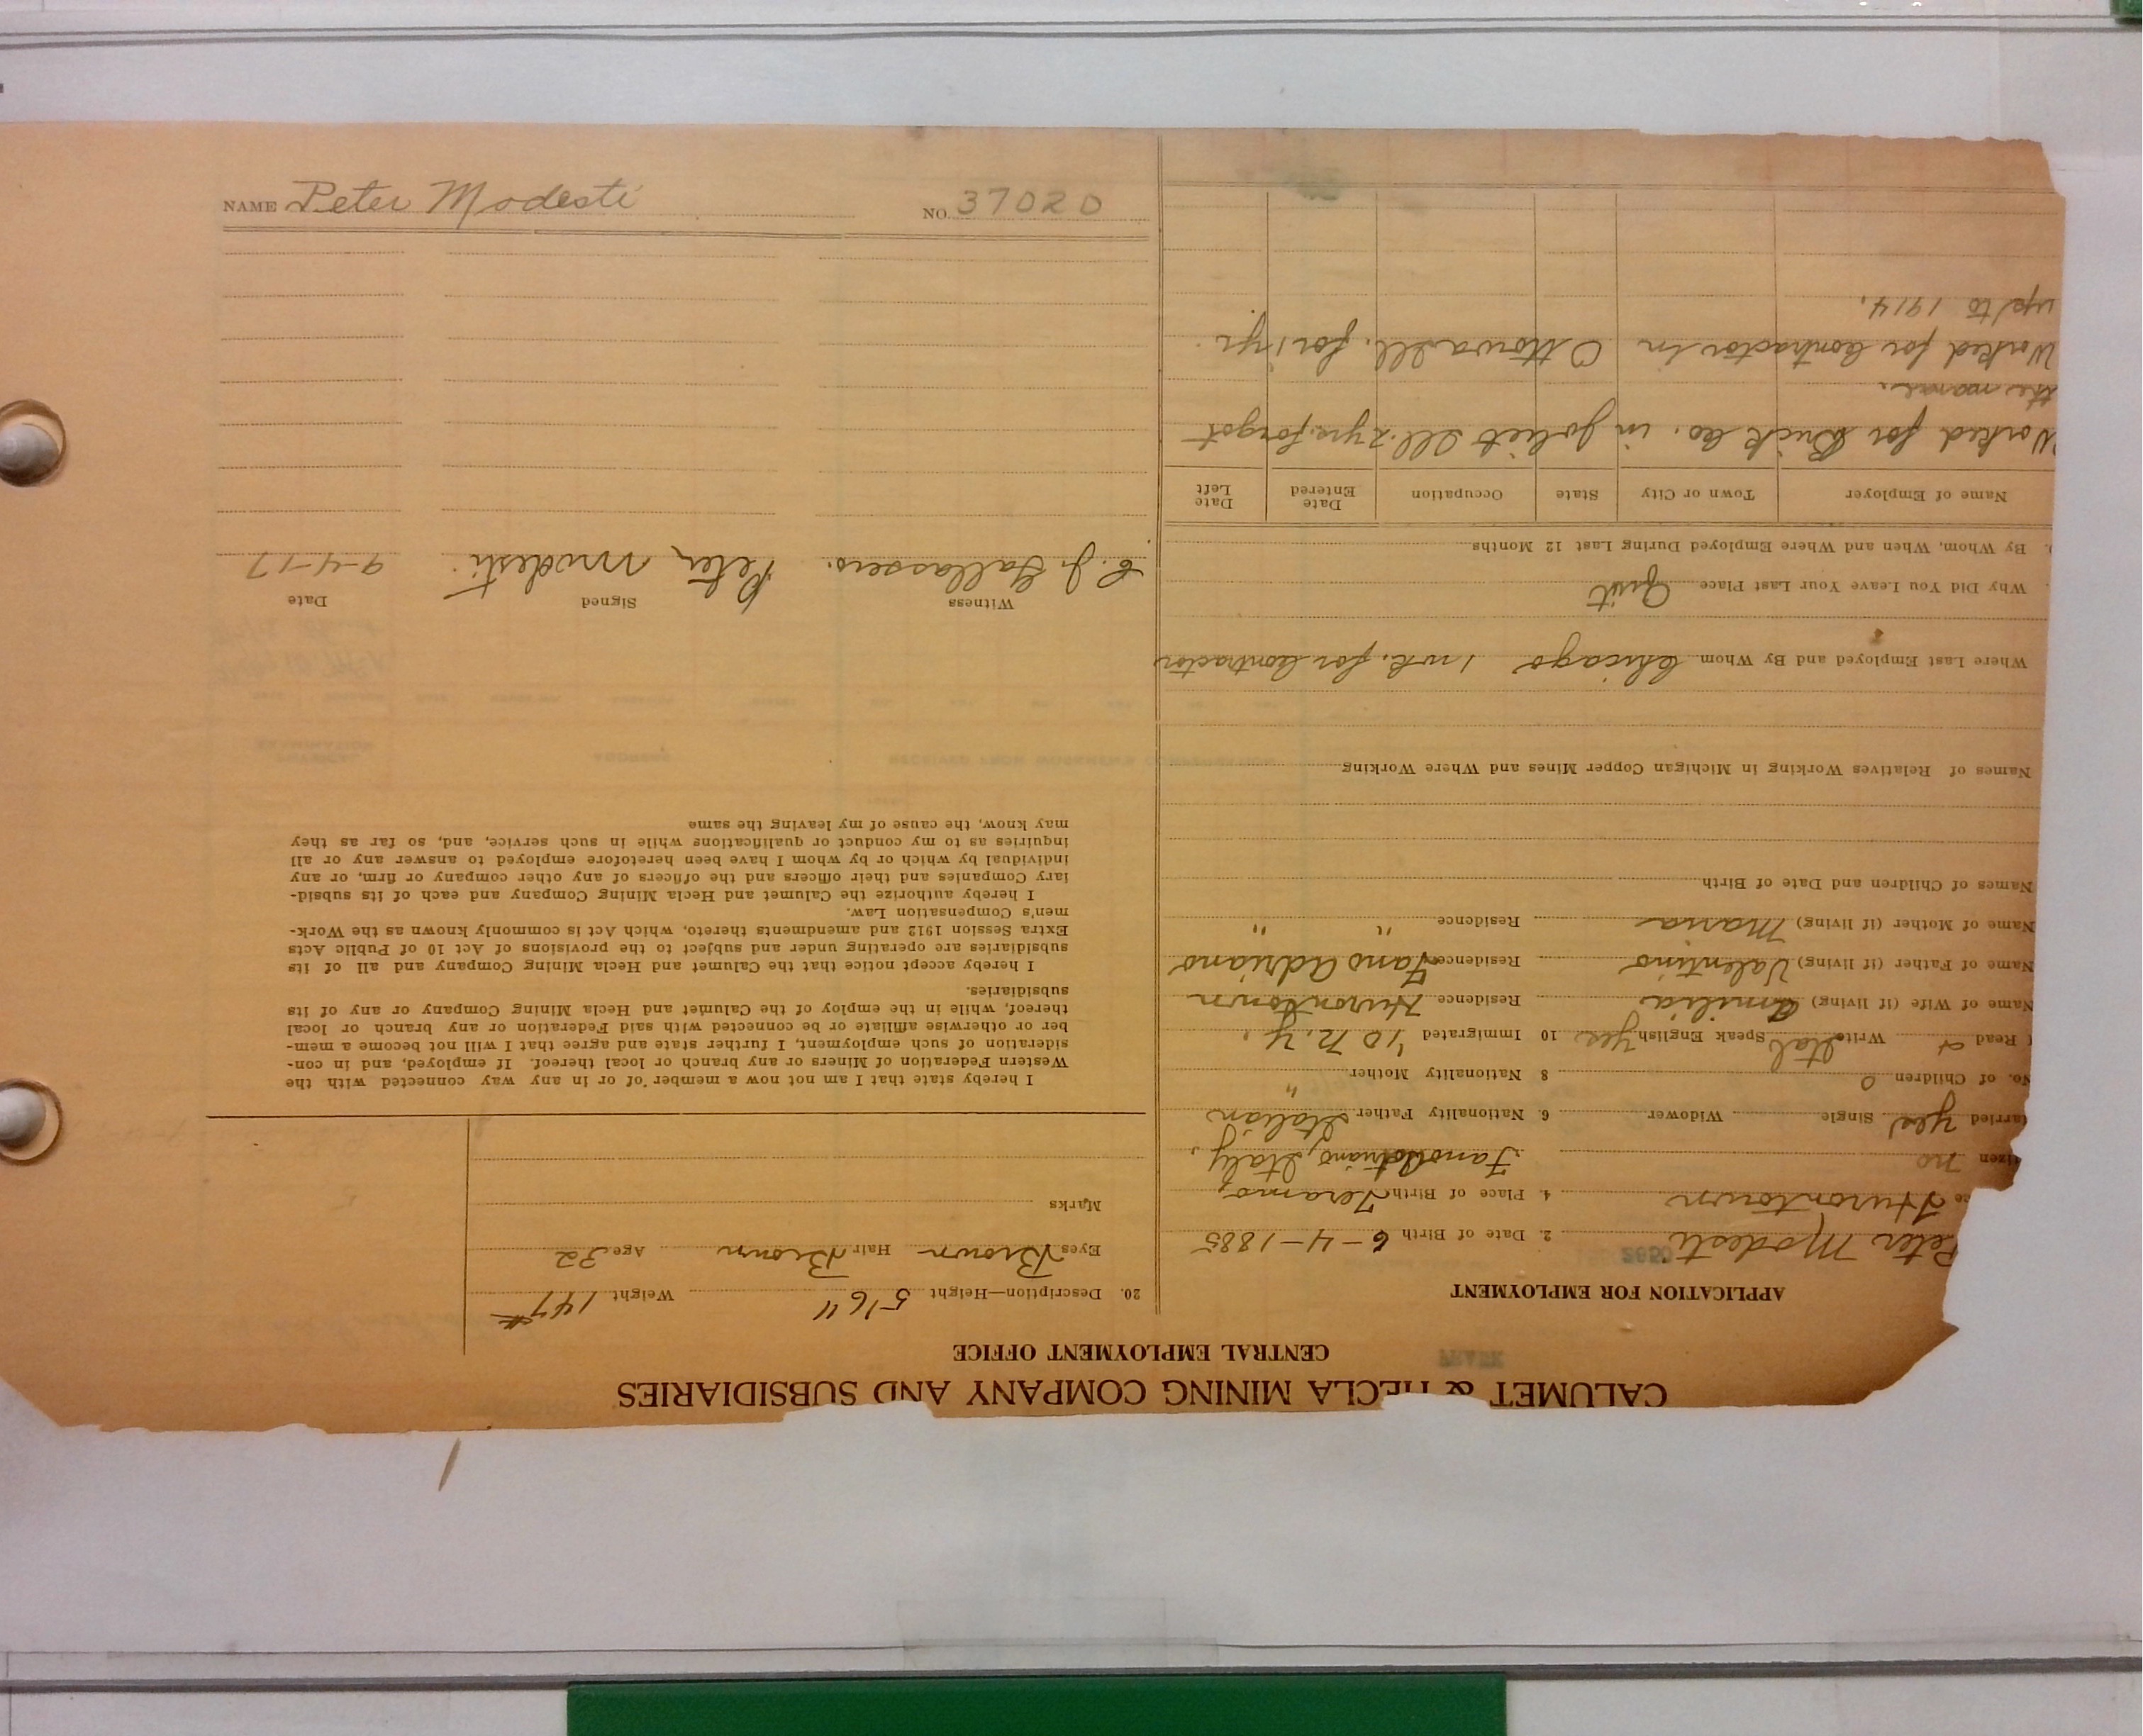 CALUMET & HECLA MINING COMPANY AND SUBSIDIARIES
CENTRAL EMPLOYMENT OFFICE
APPLICATION FOR EMPLOYMENT
Peter Modesti 2. Date of Birth 6-4-1885
Hurontown 4. Place of Birth Teramo,
no Fano Adriano, Italy,
arried yes Single Widower 6. Nationality Father Italian
No. of Children 0 8 Nationality Mother "
Read & Write Ital Speak English yes 10 Immigrated '10 N.Y.
Name of Wife (if living) Amilia Residence Hurontown
Name of Father (if living) Valentino Residence Fano Adriano
Name of Mother (if living) Maria Residence " "
Names of Children and Date of Birth
Names of Relatives Working in Michigan Copper Mines and Where Working
Where Last Employed and By Whom Chicago 1 wk. for Contractor
Why Did You Leave Your Last Place Quit
By Whom, When and Where Employed During Last 12 Months
Name of Employer Town or City State Occupation Date Entered Date Left
Worked for Brick Co. in Joliet Ill. 2 yrs. forgot
the name.
Worked for Contractor in Ottowa Ill. for 1 yr.
up to 1914.
20. Description—Height 5'6" Weight 147#
Eyes Brown Hair Brown Age 32
Marks
I hereby state that I am not now a member of or in any way connected with the
Western Federation of Miners or any branch or local thereof. If employed, and in con-
sideration of such employment, I further state and agree that I will not become a mem-
ber or otherwise affiliate or be connected with said Federation or any branch or local
thereof, while in the employ of the Calumet and Hecla Mining Company or any of its
subsidiaries.
I hereby accept notice that the Calumet and Hecla Mining Company and all of its
subsidiaries are operating under and subject to the provisions of Act 10 of Public Acts
Extra Session 1912 and amendments thereto, which Act is commonly known as the Work-
men's Compensation Law.
I hereby authorize the Calumet and Hecla Mining Company and each of its subsid-
iary Companies and their officers and the officers of any other company or firm, or any
individual by which or by whom I have been heretofore employed to answer any or all
inquiries as to my conduct or qualifications while in such service, and, so far as they
may know, the cause of my leaving the same
Witness Signed Date
Peter Modesti 9-4-17
NAME Peter Modesti NO. 37020